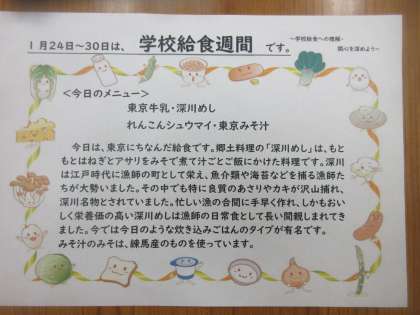 1月24日～30日は、 学校給食週間 です。
～学校給食への理解・
関心を深めよう～
＜今日のメニュー＞
東京牛乳・深川めし
れんこんシュウマイ・東京みそ汁
今日は、東京にちなんだ給食です。郷土料理の「深川めし」は、も
ともとはねぎとアサリをみそで煮て汁ごとご飯にかけた料理です。深川
は江戸時代に漁師の町として栄え、魚介類や海苔などを捕る漁師た
ちが大勢いました。その中でも特に良質のあさりやカキが沢山捕れ、
深川名物とされていました。忙しい漁の合間に手早く作れ、しかもおい
しく栄養価の高い深川めしは漁師の日常食として長い間親しまれてき
ました。今では今日のような炊き込みごはんのタイプが有名です。
みそ汁のみそは、練馬産のものを使っています。